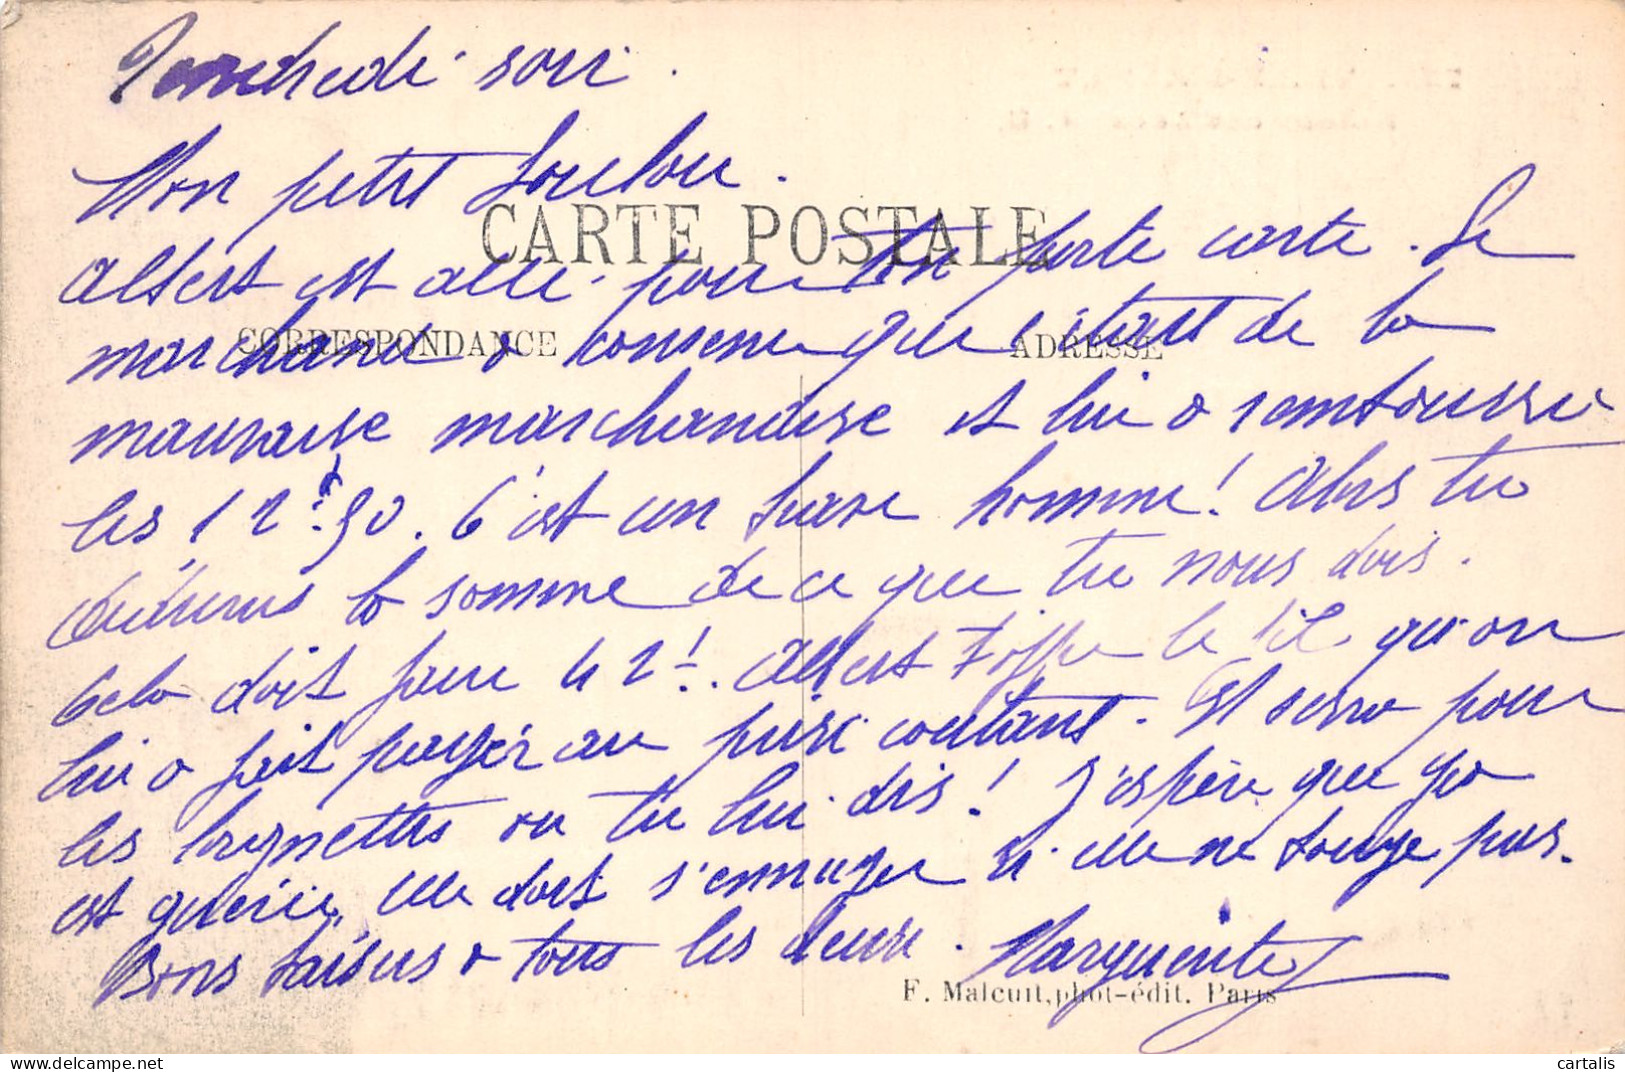 Vendredi soir.
Mon petit Loulou.
CARTE POSTALE
Albert est allé pour ton porte carte. Le
CORRESPONDANCE
ADRESSE
marchand a convenu que c'était de la
mauvaise marchandise et lui a remboursé
les 12f.90. C'est un brave homme! Alors tu
déduiras la somme de ce que tu nous dois.
Cela doit faire 42f. Albert t'offre le fil qu'on
lui a fait payer au prix coûtant. Il servira pour
les lorgnettes ou tu lui dis! J'espère que
est guérie, elle doit s'ennuyer si elle ne bouge pas.
Bons baisers à tous les deux. Marguerite
F. Malcuit, phot-édit. Paris
cartalis